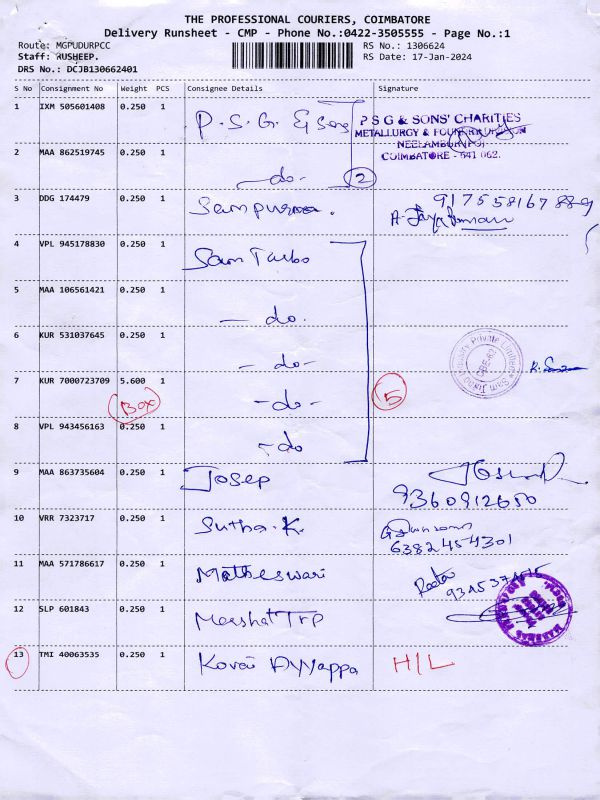 THE PROFESSIONAL COURIERS, COIMBATORE
Delivery Runsheet - CMP - Phone No.:0422-3505555 - Page No.:1
Route: MGPUDURPCC RS No.: 1306624
Staff: RUSHEEP. RS Date: 17-Jan-2024
DRS No.: DCJB130662401
S No Consignment No Weight PCS Consignee Details Signature
1 IXM 505601408 0.250 1 P.S.G. & Sons P S G & SONS' CHARITIES
METALLURGY & FOUNDRY DIVISION
NEELAMBUR(PO)
COIMBATORE - 641 062.
2 MAA 862519745 0.250 1 -do- 2
3 DDG 174479 0.250 1 Sampurna. 917558167889
A. Jaya
4 VPL 945178830 0.250 1 Sam Turbo
5 MAA 106561421 0.250 1 - do.
6 KUR 531037645 0.250 1 - do - Sam Turbo Industry Private Limited
CBE-62
7 KUR 7000723709 5.600 1 - do - 5
Box
8 VPL 943456163 0.250 1 - do
9 MAA 863735604 0.250 1 Josep
9360912650
10 VRR 7323717 0.250 1 Sutha.K.
6382454301
11 MAA 571786617 0.250 1 Matheswari
12 SLP 601843 0.250 1 Marshal TRP
13 TMI 40063535 0.250 1 Kovai Ayyappa H/L